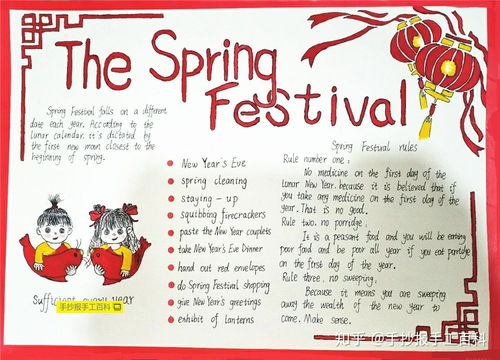 The Spring
Festival
Spring Festival falls on a different
date each year. According to the
lunar calendar. it's dictated by
the first new moon closest to the
beginning of spring.
New Year's Eve
spring cleaning
staying - up
squibbing firecrackers
paste the New Year couplets
take New Year's Eve Dinner
hand out red envelopes
do Spring Festival shopping
give New Year's greetings
exhibit of lanterns
Spring Festival rules
Rule number one :
No medicine on the first day of the
lunar New Year. because it is believed that if
you take ang medicine on the first day of the
year. That is no good.
Rule two. no porridge.
It is a peasant food and you will be eating
poor food and be poor all year if you eat porridge
on the first day of the year.
Rule three. no sweeping.
Because it means you are sweeping
away the wealth of the new year to
come. Make sense.
Sufficient every year
手抄报手工百科
知乎 @手抄报手工百科